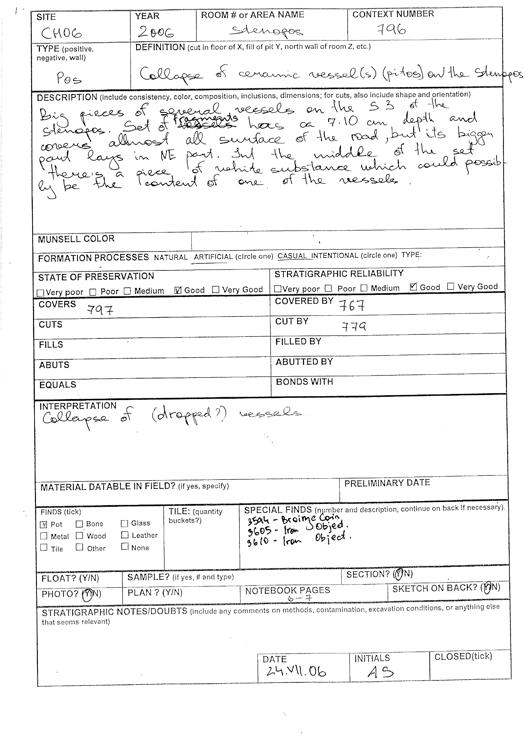 SITE YEAR ROOM # or AREA NAME CONTEXT NUMBER
CH06 2006 Stenopos 796
TYPE (positive, negative, wall) DEFINITION (cut in floor of X, fill of pit Y, north wall of room Z, etc.)
Pos Collapse of ceramic vessel(s) (pitos) on the stenopos
DESCRIPTION (include consistency, color, composition, inclusions, dimensions; for cuts, also include shape and orientation)
Big pieces of several vessels on the S3 of the
stenopos. Set of fragments has ca 7-10 cm depth and
covers allmost all surface of the road, but its bigger
part lays in NE part. Int the middle of the set
there's a piece of white substance which could possib-
ly be the content of one of the vessels.
MUNSELL COLOR
FORMATION PROCESSES NATURAL ARTIFICIAL (circle one) CASUAL INTENTIONAL (circle one) TYPE:
STATE OF PRESERVATION STRATIGRAPHIC RELIABILITY
☐ Very poor ☐ Poor ☐ Medium ☑ Good ☐ Very Good ☐ Very poor ☐ Poor ☐ Medium ☑ Good ☐ Very Good
COVERS 797 COVERED BY 767
CUTS CUT BY 779
FILLS FILLED BY
ABUTS ABUTTED BY
EQUALS BONDS WITH
INTERPRETATION
Collapse of (dropped?) vessels
MATERIAL DATABLE IN FIELD? (if yes, specify) PRELIMINARY DATE
FINDS (tick) TILE: (quantity buckets?) SPECIAL FINDS (number and description, continue on back if necessary)
☑ Pot ☐ Bone ☐ Glass 3594 - Bronze Coin
☐ Metal ☐ Wood ☐ Leather 3605 - Iron Object.
☐ Tile ☐ Other ☐ None 3610 - Iron Object.
FLOAT? (Y/N) SAMPLE? (if yes, # and type) SECTION? (Y/N)
PHOTO? (Y/N) PLAN ? (Y/N) NOTEBOOK PAGES 6-7 SKETCH ON BACK? (Y/N)
STRATIGRAPHIC NOTES/DOUBTS (include any comments on methods, contamination, excavation conditions, or anything else
that seems relevant)
DATE INITIALS CLOSED(tick)
24.VII.06 AS